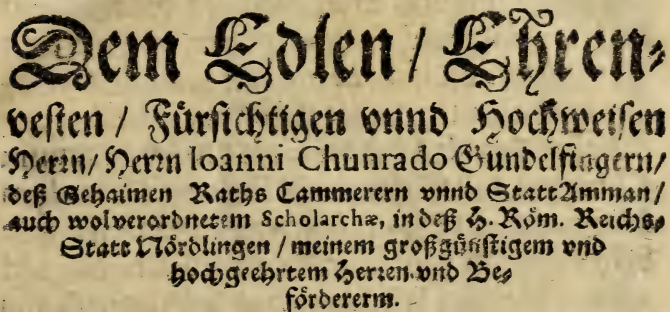 Dem Edlen / Ehren⸗
vesten / Fürsichtigen vnnd Hochweisen
Herrn / Herrn Ioanni Chunrado Gundelfingern /
deß Gehaimen Raths Cammerern vnnd Statt Amman /
auch wolverordnetem Scholarchæ, in deß H. Röm. Reichs⸗
Statt Nördlingen / meinem großgünstigem vnd
hochgeehrtem Herren vnd Be⸗
förderern.